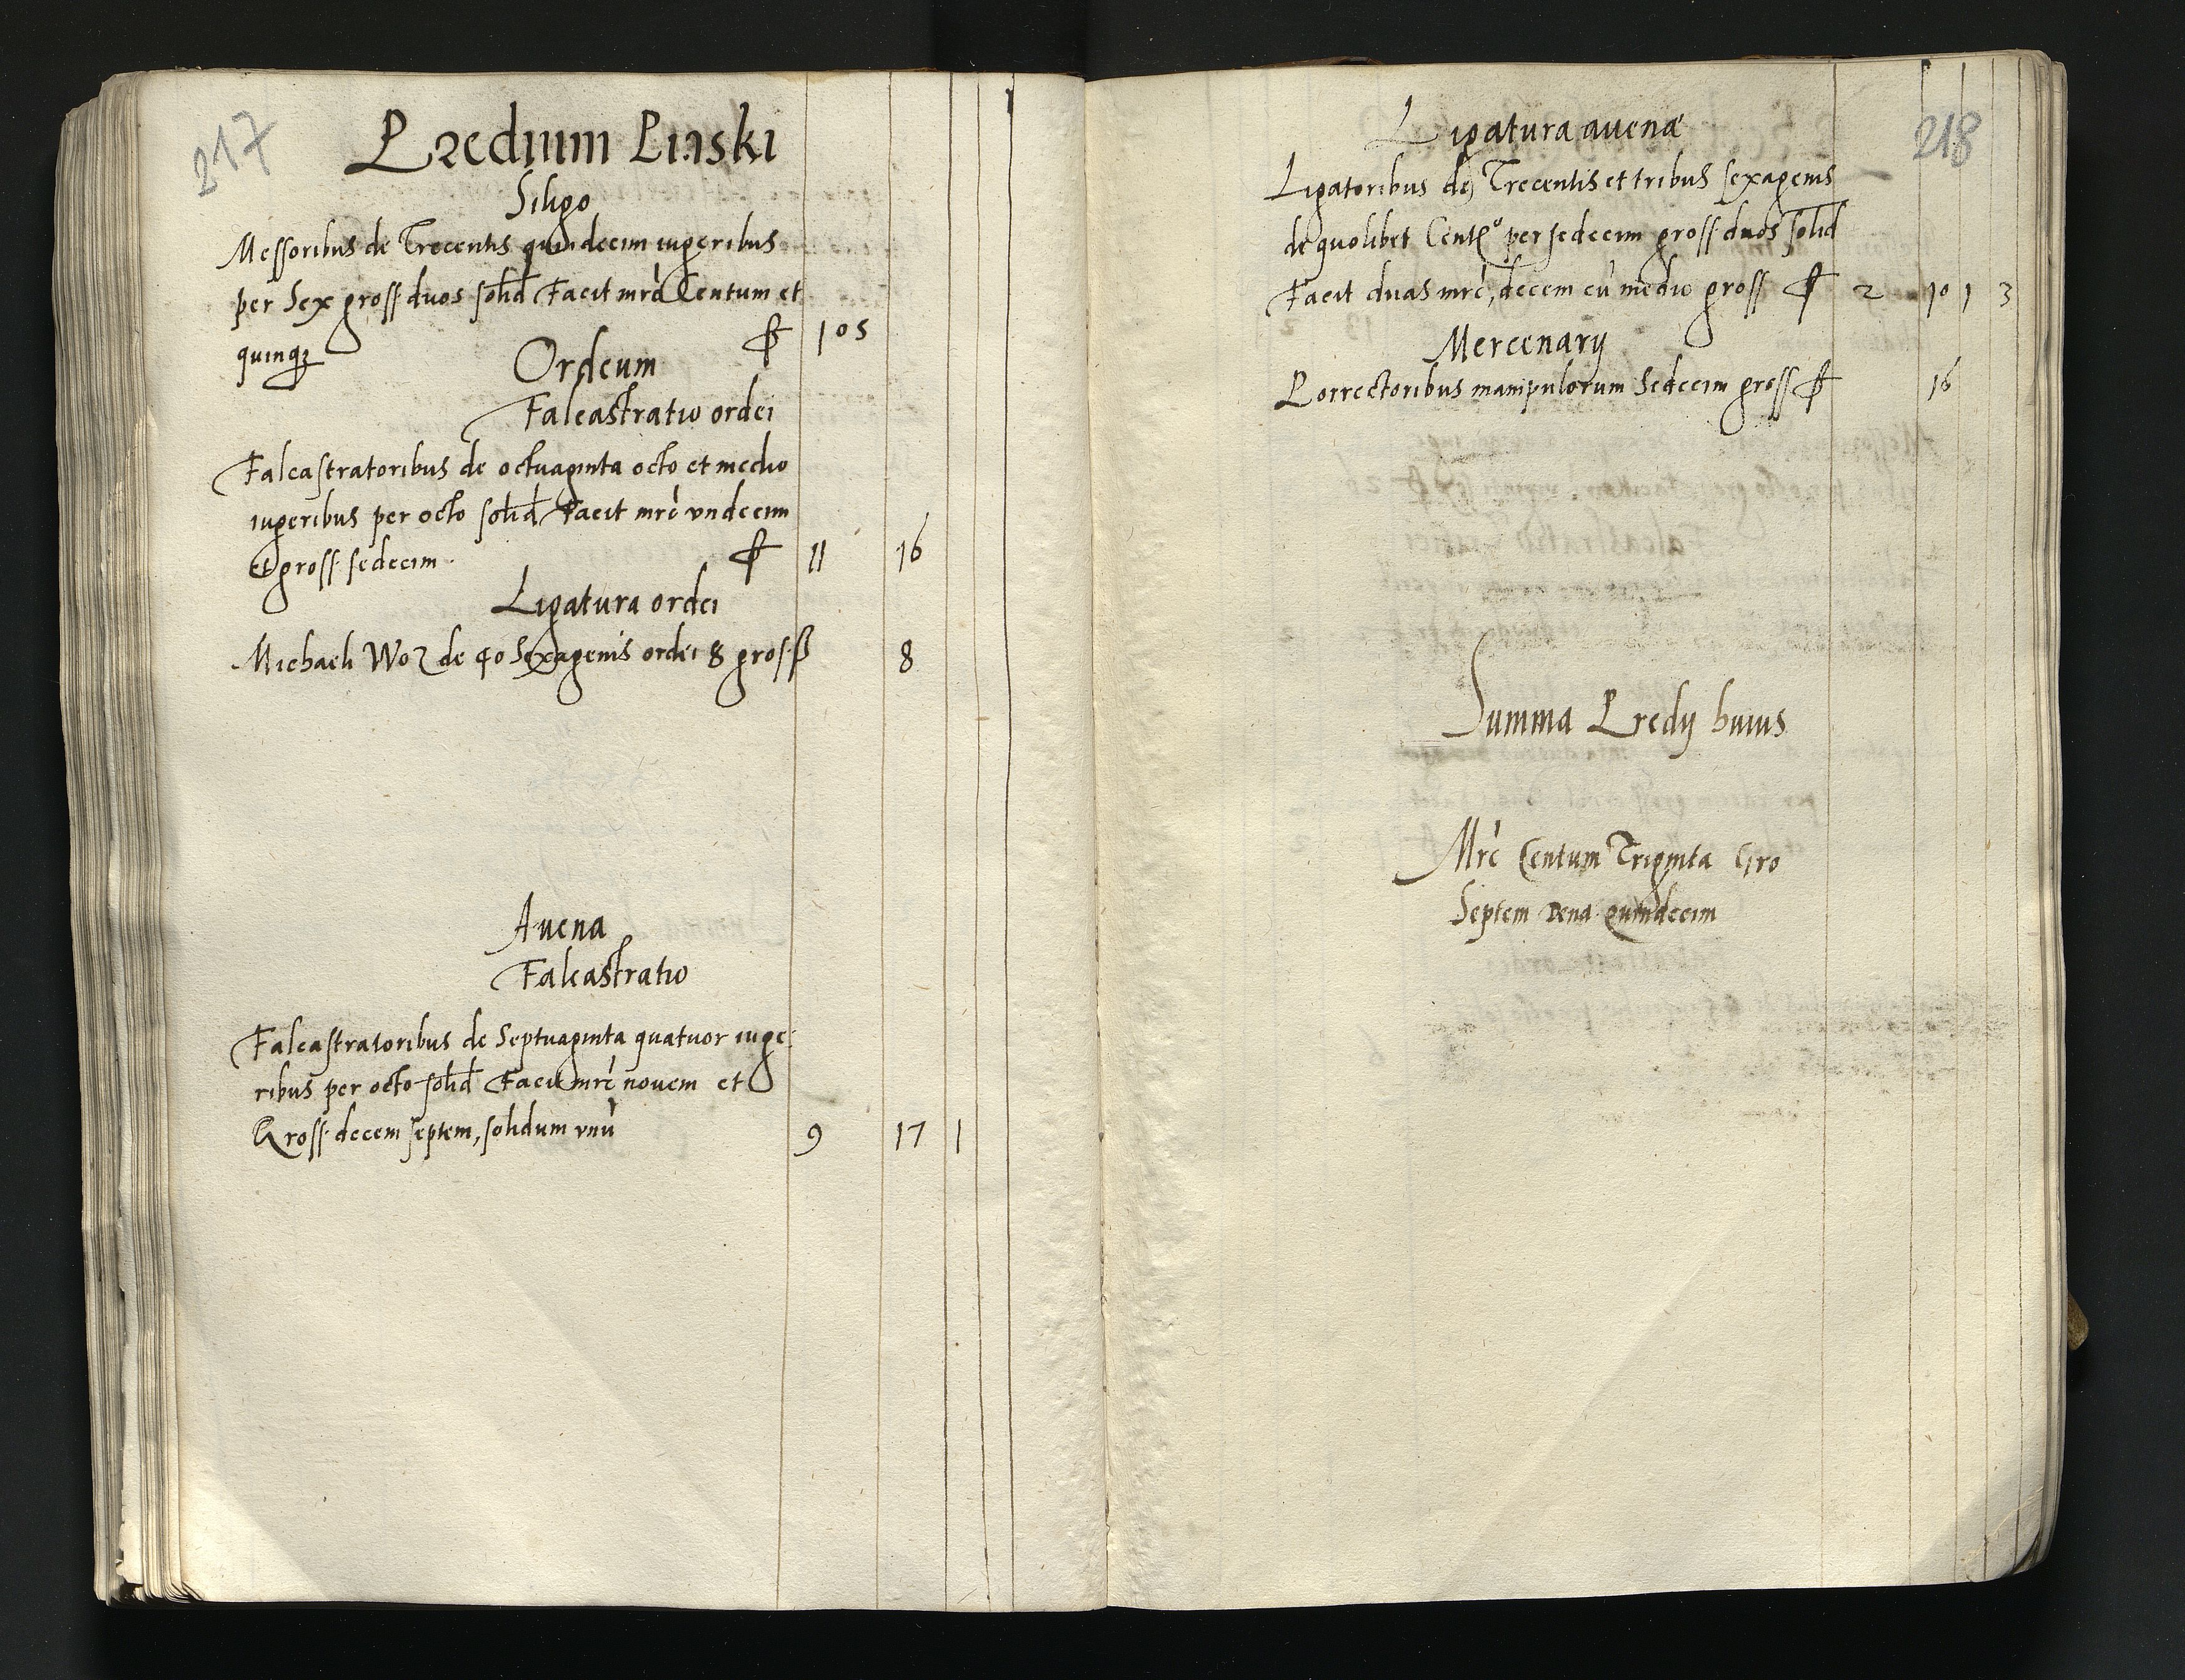 217
Predium Linski
Siligo
Messoribus de Trecentis quindecim iugeribus
per Sex gross duos solid Facit mrc Centum et
quinqꝫ 105
Ordeum
Falcastratio ordei
Falcastratoribus de octuaginta octo et medio
iugeribus per octo solid Facit mrc vndecim
Et gross sedecim 11 16
Ligatura ordei
Michaeli Woz de 40 Sexagenis ordei 8 gros 8
Auena
Falcastratio
Falcastratoribus de Septuaginta quatuor iuge:
ribus per octo solid Facit mrc novem et
Gross decem septem, solidum vnu 9 17 1
218
Ligatura auenæ
Ligatoribus de Trecentis et tribus sexagenis
de quolibet Cent° per sedecim gross duos solid
Facit duas mrc, decem cu medio gross 2 10 1 3
Mercenarij
Porrectoribus manipulorum Sedecim gross 16
Summa Predij huius
Mrc Centum Triginta Gro
Septem Dena quindecim